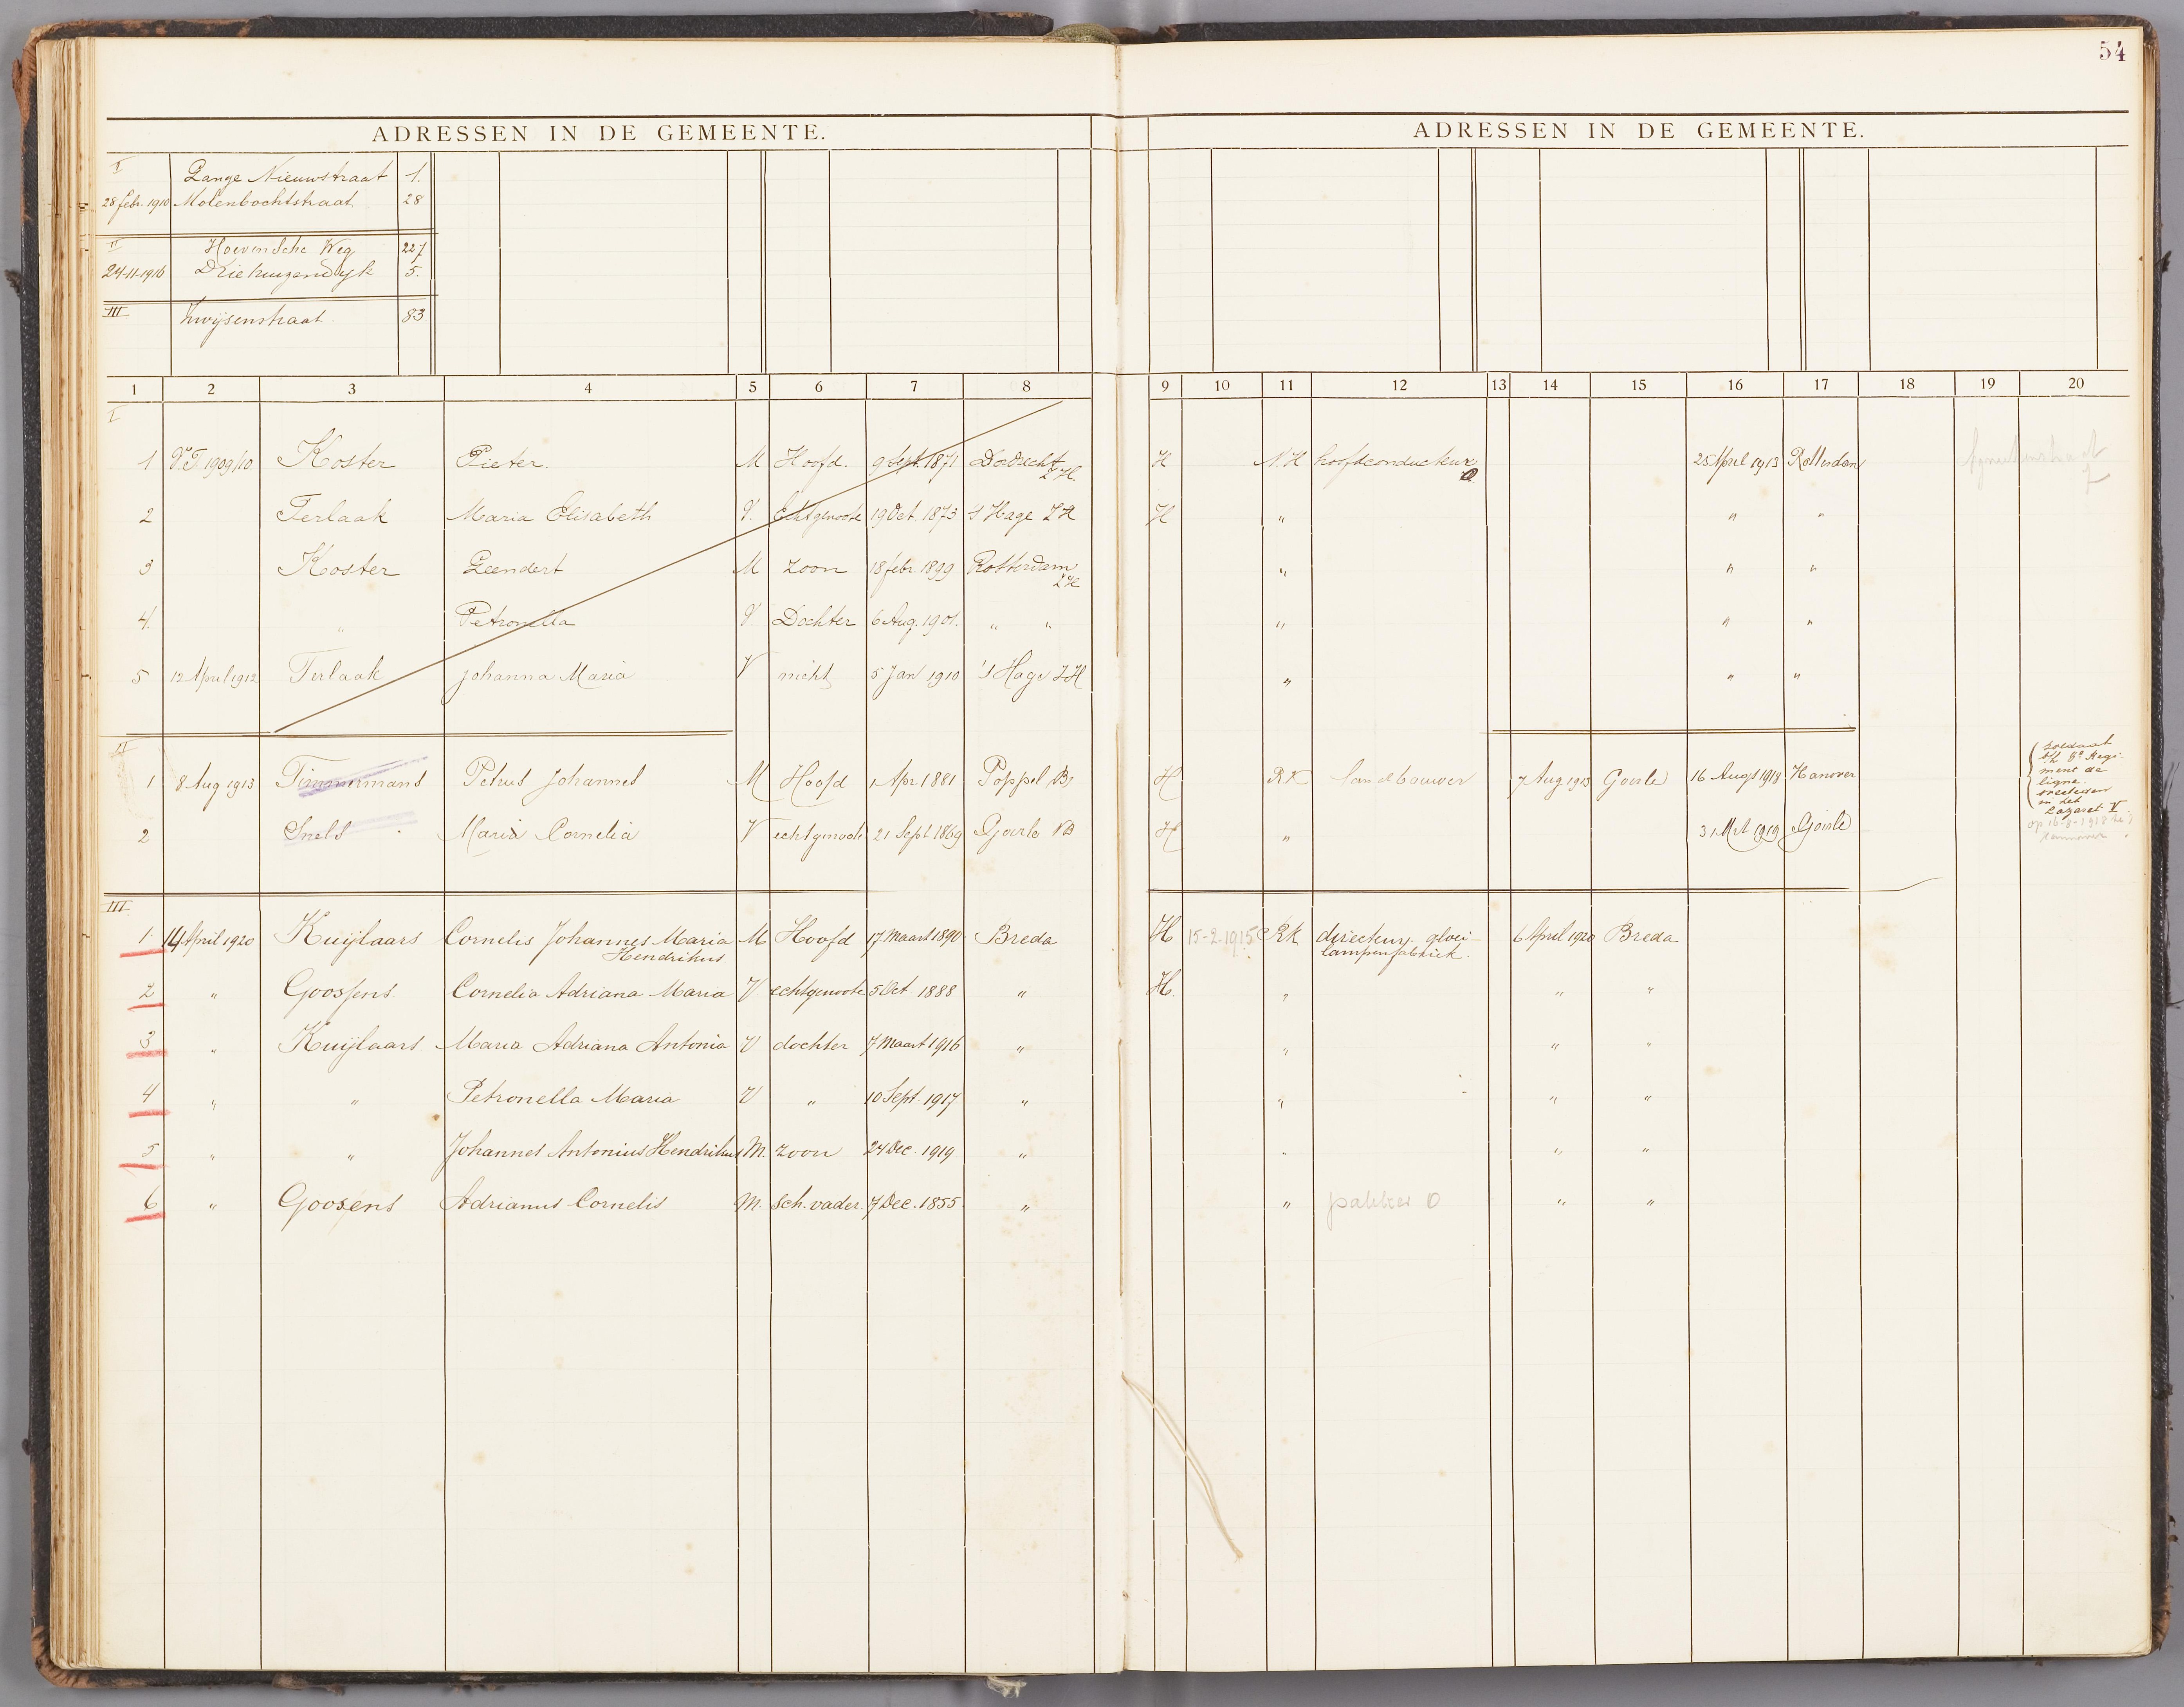 54
ADRESSEN IN DE GEMEENTE.
ADRESSEN IN DE GEMEENTE.
I Lange Nieuwstraat 1.
28 febr. 1910 Molenbochtstraat 28
II Hoevensche Weg 227
24-11-1916 Driehuizendijk 5.
III Zwijsenstraat 83
1 2 3 4 5 6 7 8 9 10 11 12 13 14 15 16 17 18 19 20
I
1 V.T. 1909/10 Koster Pieter. M Hoofd. 9 Sept. 1871 Dordrecht Z.H. H N.H hoofdconducteur 25 April 1913 Rotterdam
2 Terlaak Maria Elisabeth V. Echtgenoote 19 Oct. 1873 's Hage ZH H " " "
3 Koster Leendert M zoon 18 febr. 1899 Rotterdam ZH " " "
4. " Petronella V Dochter 6 Aug. 1901. " " " " "
5 12 April 1912 Terlaak Johanna Maria V nicht 5 Jan 1910 's Hage ZH " " "
II
1 8 Aug 1913 Timmermans Petrus Johannes M Hoofd 1 Apr. 1881 Poppel B. H RK landbouwer 7 Aug 1913 Goirle 16 Augs 1918 Hanover
soldaat
b/h 8e Regi-
ment de
ligne.
overleden
in het
Lazaret V
op 16-8-1918 te
Hannover
2 Snels Maria Cornelia V echtgenoote 21 Sept 1869 Goirle NB H " 31 Mrt 1919 Goirle
III
1. 14 April 1920 Kuijlaars Cornelis Johannes Maria M Hoofd 17 Maart 1890 Breda H 15-2-1915 RK directeur gloei- 6 April 1920 Breda
Hendrikus lampenfabriek.
2 " Goossens. Cornelia Adriana Maria V echtgenoote 5 Oct 1888 " H. " " "
3 " Kuijlaars Maria Adriana Antonia V dochter 7 Maart 1916 " " " "
4 " " Petronella Maria V " 10 Sept. 1917 " " " "
5 " " Johannes Antonius Hendrikus M. zoon 24 Dec. 1919 " " " "
6 " Goosens Adrianus Cornelis M. Sch. vader. 7 Dec. 1855. " " pakker O " "